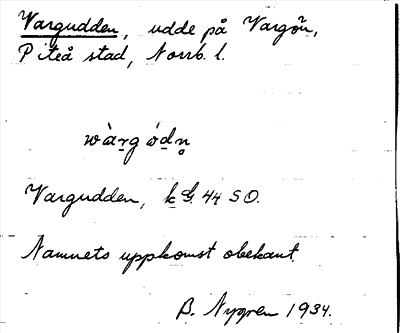 Vargudden, udde på Vargön,
Piteå stad, Norrb. l.
wàrg ódn̥
Vargudden, kG. 44 SO.
Namnets uppkomst obekant.
B. Nygren 1934.